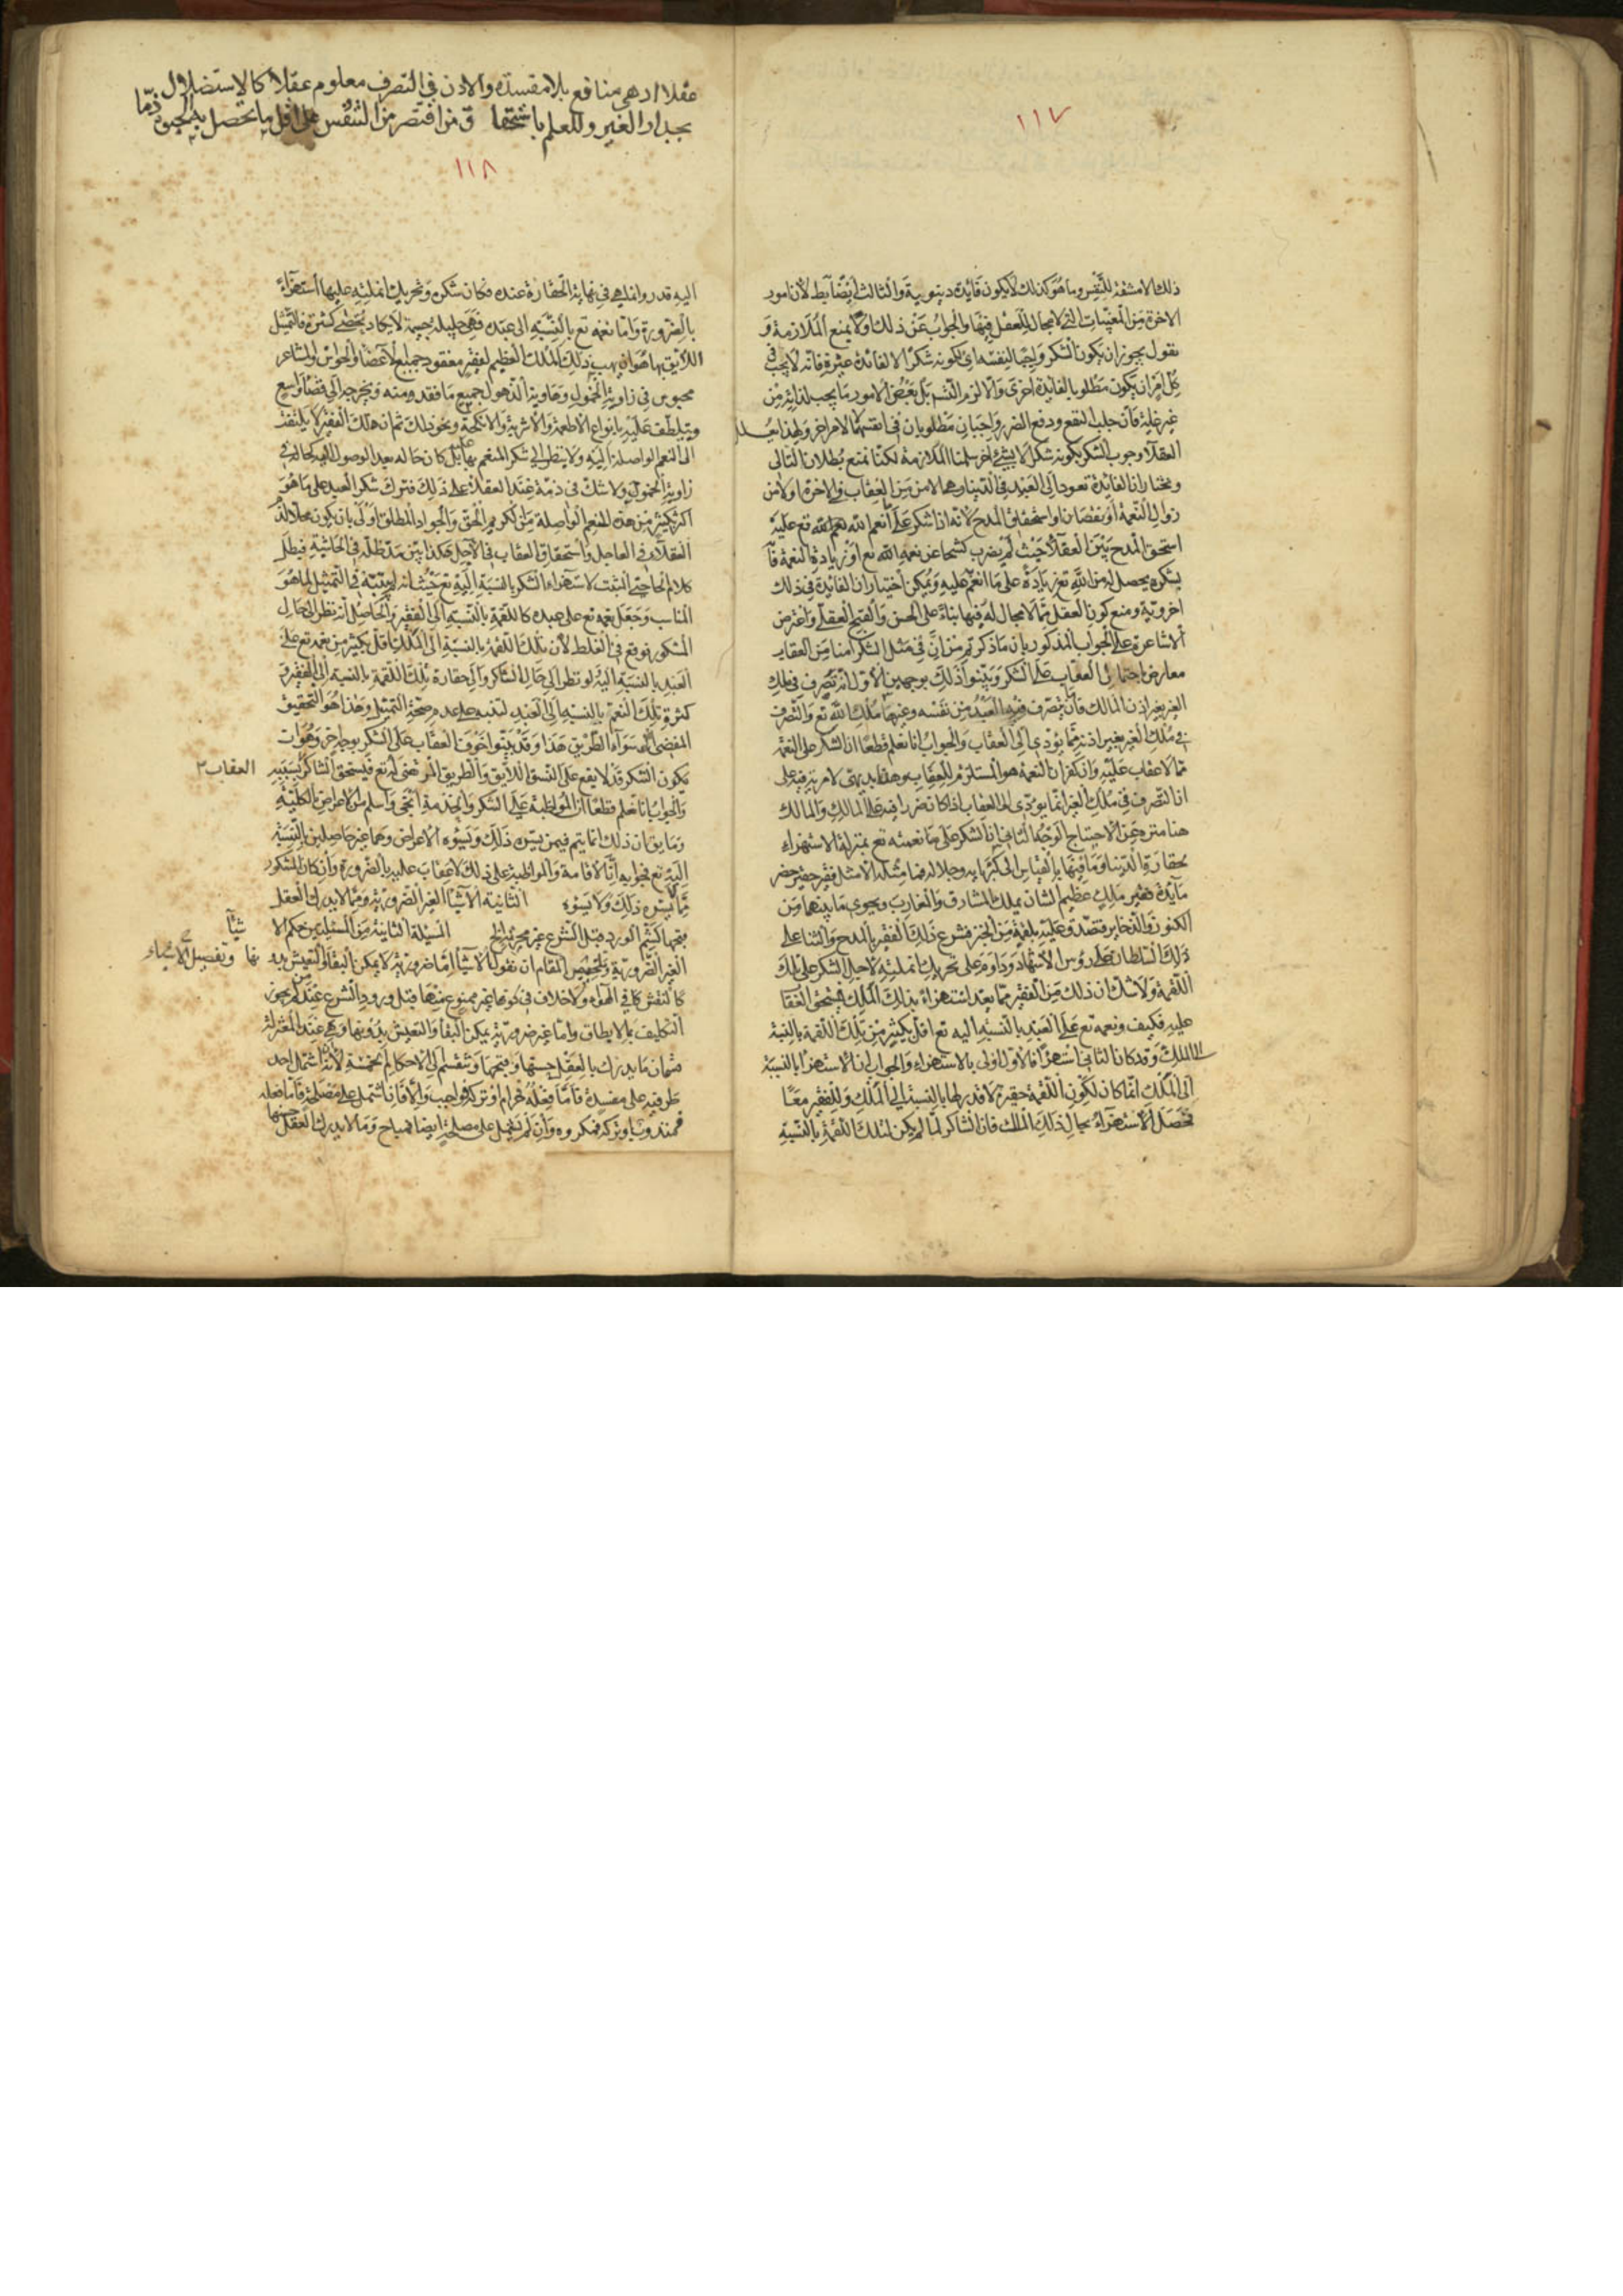 ١١٧
ذلك الا مشقة للنفس وما هو كذلك لا يكون فايدة دنيوية والثالث ايضا بط لان امور
الاخرة من المغيبات التي لا مجال للعقل فيها والجواب عن ذلك اولا بمنع الملازمة و
نقول يجوز ان يكون الشكر واجبا لنفسه اي لكونه شكرا لا لفائدة غيره فانه لا يجب في
كل امر ان يكون مطلوبا لفايدة اخرى والا لزم التسلسل بعض الامور ما يجب لذاته من
غير غاية فان جلب النفع ودفع الضرر واجبان مطلوبان في انفسهما لا لامر اخر ولهذا يعلل
العقلا وجوب الشكر بكونه شكرا لا بشئ اخر سلمنا الملازمة لكنا نمنع بطلان التالى
ونختار ان الفائدة تعود الى العبد في الدنيا وهى الامن من العقاب في الاخرة او الامن
زوال النعمة او نقصانها او استحقاق المدح لانه اذا شكر على انعم الله نعم الله تع عليه
استحق المدح بين العقلا حيث لم يضرب كشحا عن نعم الله تع او زيادة النعمة فان
بشكره يحصل له من الله تع زيادة على ما انعم عليه ويمكن اختيار ان الفائدة في ذلك
اخروية ومنع كون العقل مما لا مجال له فيها بناء على الحسن والقبح العقلي واعترض
الاشاعرة على الجواب المذكور بان ما ذكرتم من ان في مثل الشكر امنا من العقاب
معارض باحتمال العقاب على الشكر وبينوا ذلك بوجهين الاول انه تصرف في ملك
الغير بغير اذن المالك فان ما يتصرف فيه العبد من نفسه وغيرها ملك الله تع والتصرف
في ملك الغير بغير اذنه مما يؤدي الى العقاب والجواب انا نعلم قطعا ان الشكر على النعمة
مما لا عقاب عليه وان كفران النعمة هو المستلزم للعقاب وهذا بديهي لا مرية فيه على
ان التصرف في ملك الغير انما يؤدى الى العقاب اذا كان ضررا فيه على المالك والمالك
هنا منزه عن الاحتياج الوجه الثاني ان الشكر على ما نعمته تع بمنزلة الاستهزاء
بحقارة الدنيا وما فيها بالقياس الى كبريائه وجلاله فما مثله الا مثل فقير حضر
مآيدة ملك عظيم الشان يملك المشارق والمغارب ويحوي ما بينهما من
الكنوز والذخاير فتصدق عليه بلقمة من الخبز فشرع ذلك الفقير بالمدح والثنا على
ذلك السلطان على رؤس الاشهاد وداوم على تحريك انملته لاجل الشكر على تلك
اللقمة ولا شك ان ذلك من الفقير مما يعد استهزاء بذلك الملك فيستحق العقا
عليه فكيف ونعمه تع على العبد بالنسبة اليه تع اقل بكثير من تلك اللقمة بالنسبة
الى الملك وقد كان الثاني استهزاءا فالاول اولى بالاستهزاء والجواب ان الاستهزا بالنسبة
الى الملك انما كان لكون اللقمة حقيرة لا قدر لها بالنسبة الى الملك وللفقير معا
فحصل الاستهزآء بحال ذلك الملك فان الشاكر لما لم يكن لتلك اللقمة بالنسبة
عقلا اذ هي منافع بلا مفسدة والاذن في التصرف معلوم عقلا كالاستضلال
بجدار الغير وللعلم باستحقاق من اقتصر من التنفس على اقل ما تحصل به الحيوة ذمّا
١١٨
اليه قدر وانما هي في نهاية الحقارة عنده فكان شكره وتحريك انملته عليها استهزآء
بالضرورة واما نعمه تع بالنسبة الى عبده فهي جليلة جسيمة لا يكاد تحصى كثرة فالتمثيل
اللايق بها هو ان يهب ذلك الملك العظيم لفقير مفقود جميع الاعضا والحواس والمشاعر
محبوس في زاوية الخمول وهاوية الذهول جميع ما فقد ومنه ويخرجه الى فضاء واسع
ويتلطف عليه بانواع الاطعمة والاشربة والانكحة ونحو ذلك ثم ان هلك الفقير لا يلتفت
الى النعم الواصلة اليه ولا ينظر الى شكر المنعم بها بل كان حاله بعد الوصول اليه كحاله في
زاوية الخمول ولا شك في ذمه عند العقلاء على ذلك فترك شكر العبد على ما هو
اكثر بكثير من هذه النعم الواصلة من الكريم الحق والجواد المطلق اولى بان يكون محلا لذم
العقلاء في العاجل واستحقاق العقاب في الآجل هكذا بين مد ظله في الحاشية فبطل
كلام الحاجبي المثبت لاستهزاء الشكر بالنسبة اليه تع حيث انه لم يتنبه في التمثيل لما هو
المناسب وجعل نعمه تع على عبده كاللقمة بالنسبة الى الفقير والحاصل انه نظر الى حال
المشكور فوقع في الغلط لان تلك اللقمة بالنسبة الى الملك اقل بكثير من نعمه تع على
العبد بالنسبة اليه ولو نظر الى حال الشاكر والى حقارة تلك اللقمة بالنسبة الى الفقير و
كثرة تلك النعم بالنسبة الى العبد لتنبه على عدم صحة التمثيل وهذا هو التحقيق
المفضى الى سوآء الطريق هذا وقد بينوا خوف العقاب على الشكر بوجه اخر وهو ان
يكون الشكر قد لا يقع على النسق اللايق والطريق المرتضى له تع فيستحق الشاكر بسببه العقاب
والجواب انا نعلم قطعا ان المواظبة على الشكر والخدمة انجى واسلم من الاعراض بالكلية
وما يق ان ذلك انما يتم فيمن يسره ذلك ويسوءه الاعراض وهما غير حاصلين بالنسبة
اليه تع فجوابه ان الاقامة والمواظبة على ذلك لا عقاب عليه بالضرورة وان كان المشكور
ممن لا يسره ذلك ولا يسوءه الثانية الاشيآء الغير الضرورية ومما لا يدرك العقل
بقبحها كشم الورد قبل الشرع غير محرمة الخ المسئلة الثانية من المسئلتين حكم الا شيآء
الغير الضرورية وتلخيص المقام ان نقول الاشيآء اما ضرورية لا يمكن البقآء والتعيش بدونها وتفصيل الاشياء
كالتنفس في الهوآء ولا خلاف في كونها غير ممنوع عنها قبل ورود الشرع عند من يجوز
التكليف بما لا يطاق واما غير ضرورية يمكن البقآء والتعيش بدونها وهي عند المعتزلة
قسمان ما يدرك بالعقل حسنها وقبحها وتنقسم الى الاحكام الخمسة لانه ان اشتمل احد
طرفيه على مفسدة فاما فعله فحرام او تركه فواجب والا فان اشتمل على مصلحة فاما فعله
فمندوب او تركه فمكروه وان لم يشتمل على مصلحة ايضا فمباح وما لا يدرك العقل حسنها